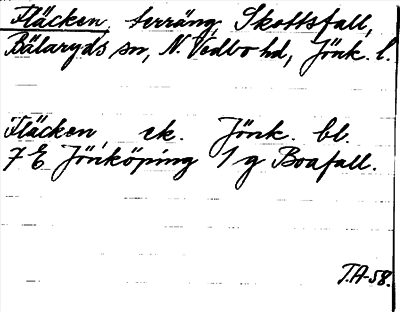 Fläcken, terräng, Skottsfall,
Bälaryds sn, N. Vedbo hd, Jönk. l.
Fläcken, ek. Jönk. bl.
7 E Jönköping 1 g Boafall.
T.A-58.